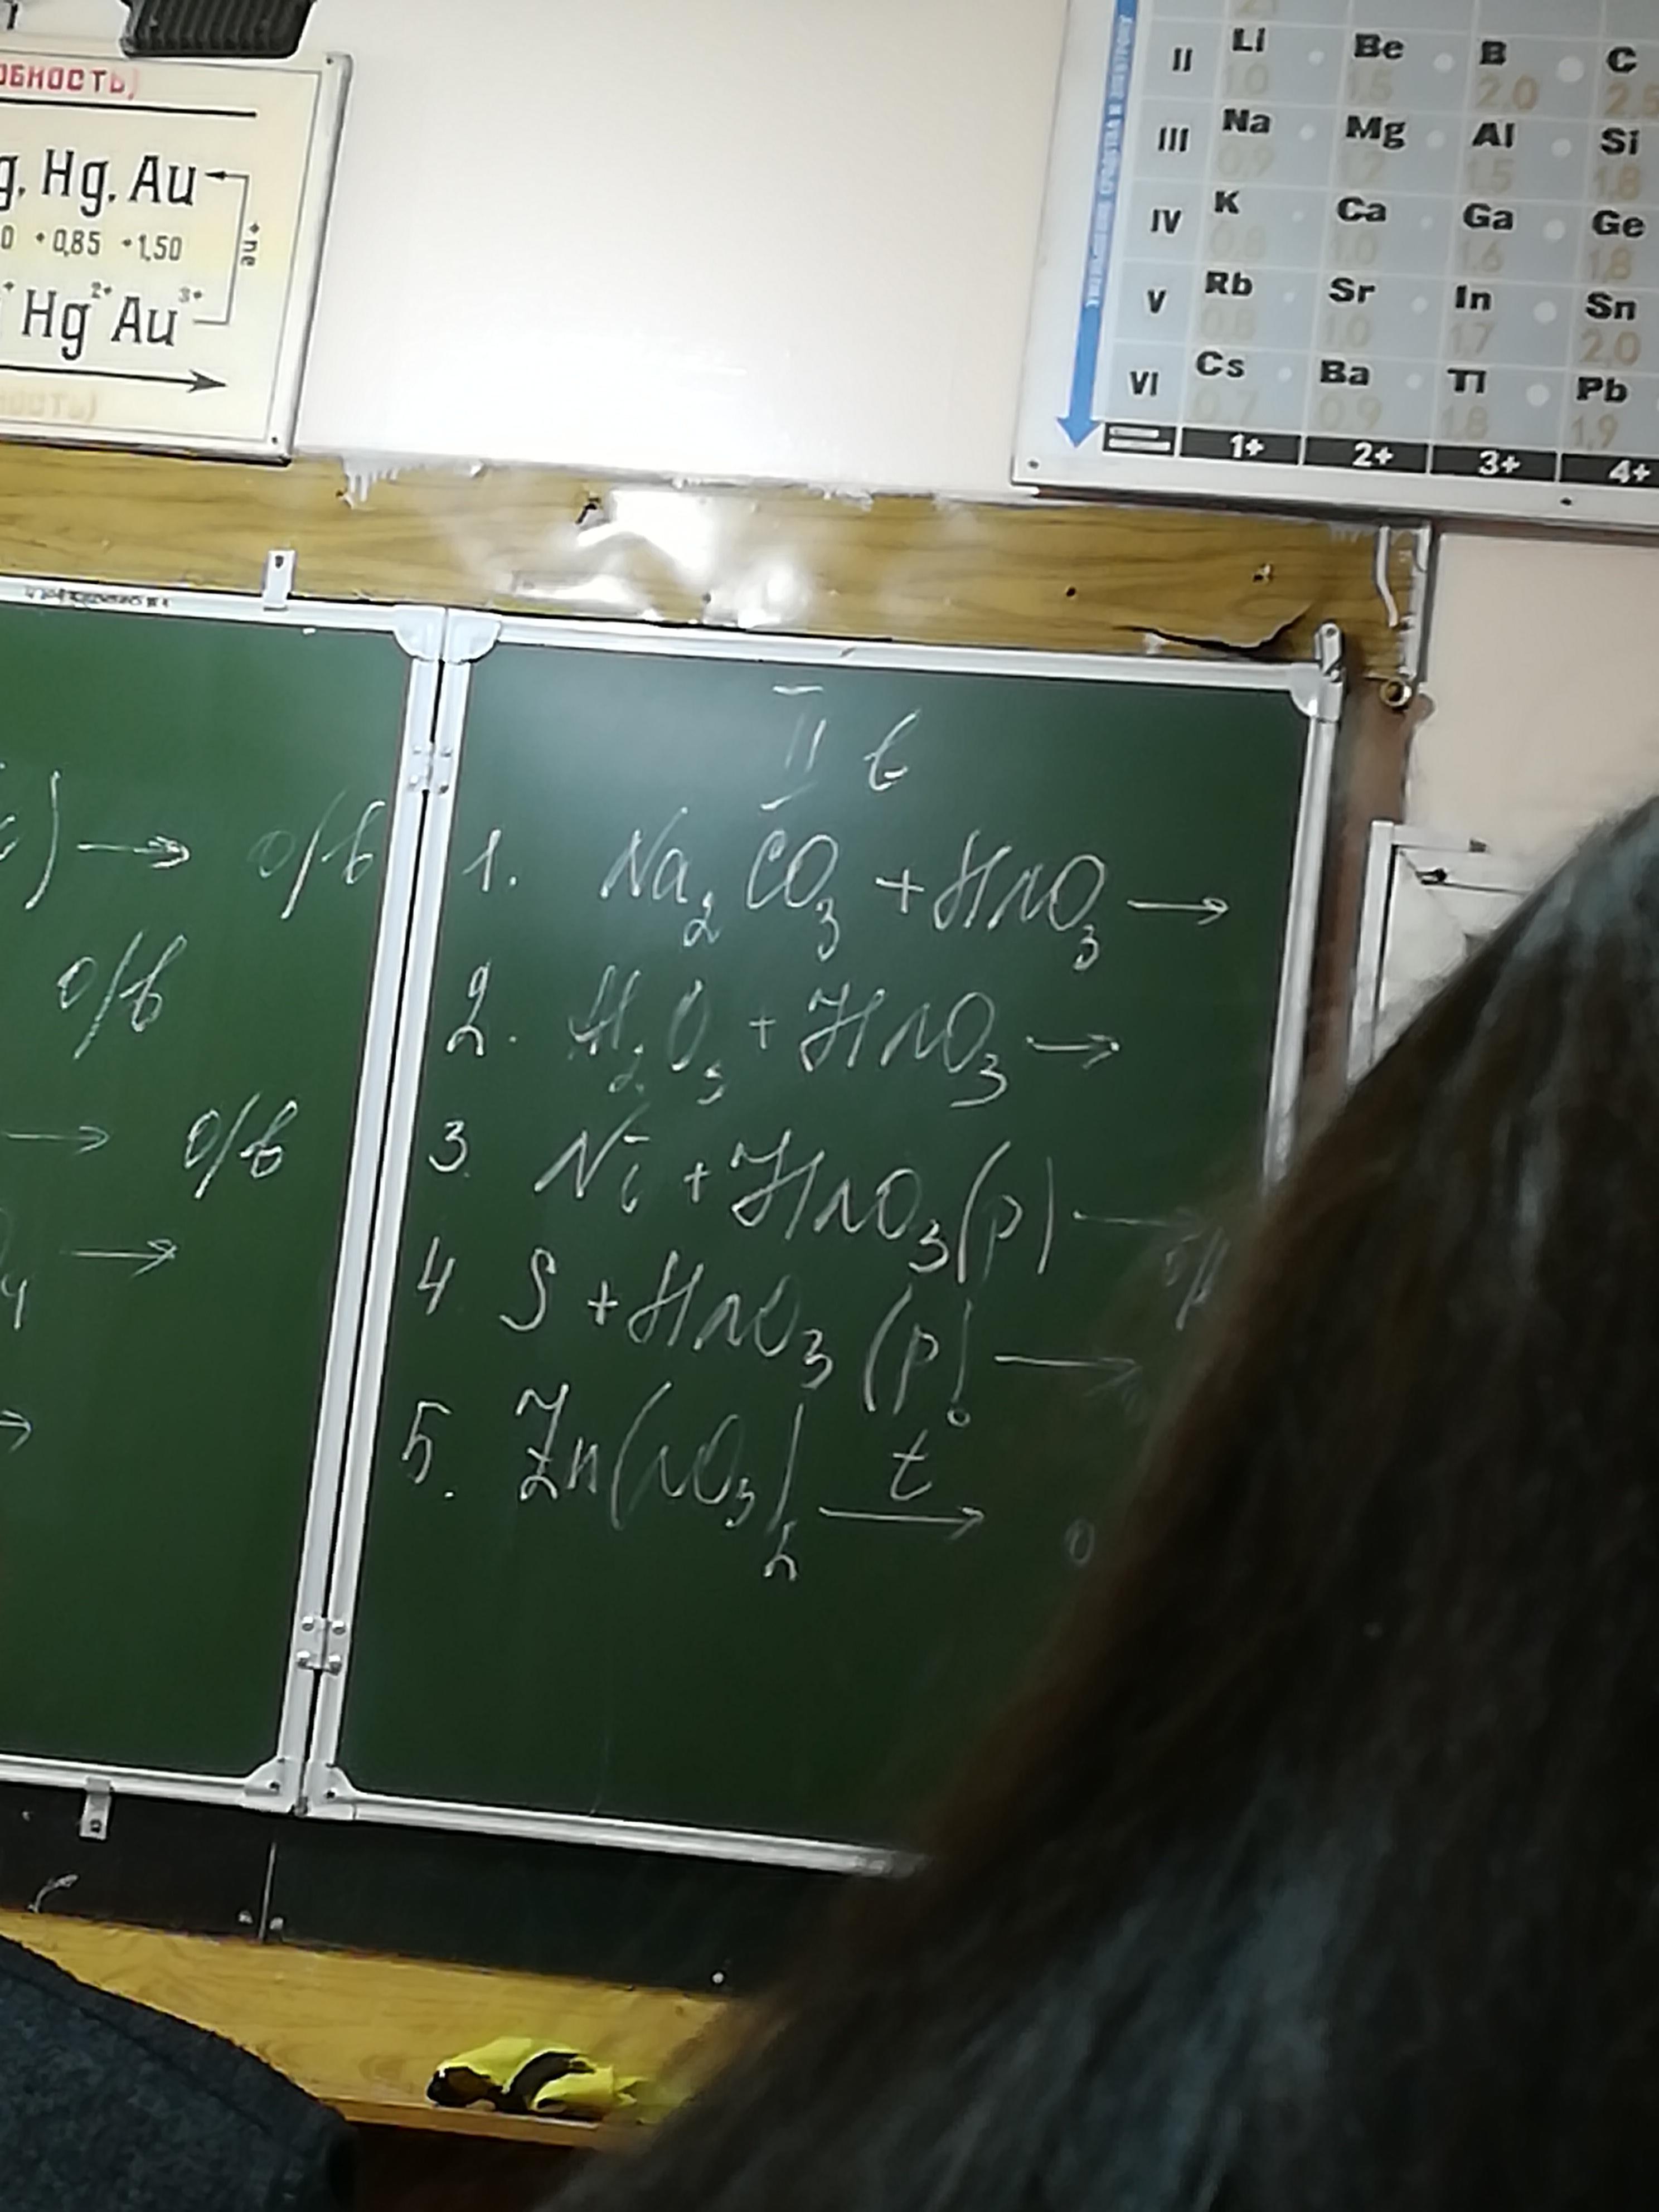 ОБНОСТЬ)
g, Hg, Au
0 +0,85 +1,50
+ne
Hg²⁺ Au³⁺
НОСТЬ)
II Li Be B C
1,0 1,5 2,0 2,5
III Na Mg Al Si
0,9 1,2 1,5 1,8
IV K Ca Ga Ge
0,8 1,0 1,6 1,8
V Rb Sr In Sn
0,8 1,0 1,7 2,0
VI Cs Ba Tl Pb
0,7 0,9 1,8 1,9
1+ 2+ 3+ 4+
) → о/в
о/в
→ о/в
4 →
→
II в
1. Na₂CO₃ + HNO₃ →
2. + HNO₃ →
3. Ni + HNO₃ (р) →
4 S + HNO₃ (р) →
5. Zn(NO₃)₂ t° → о